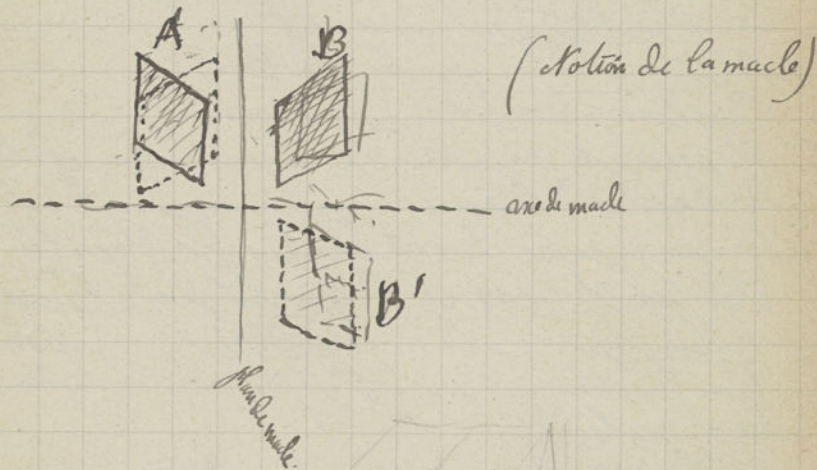 A
B
(Notion de la macle)
axe de macle
B'
plan de macle.